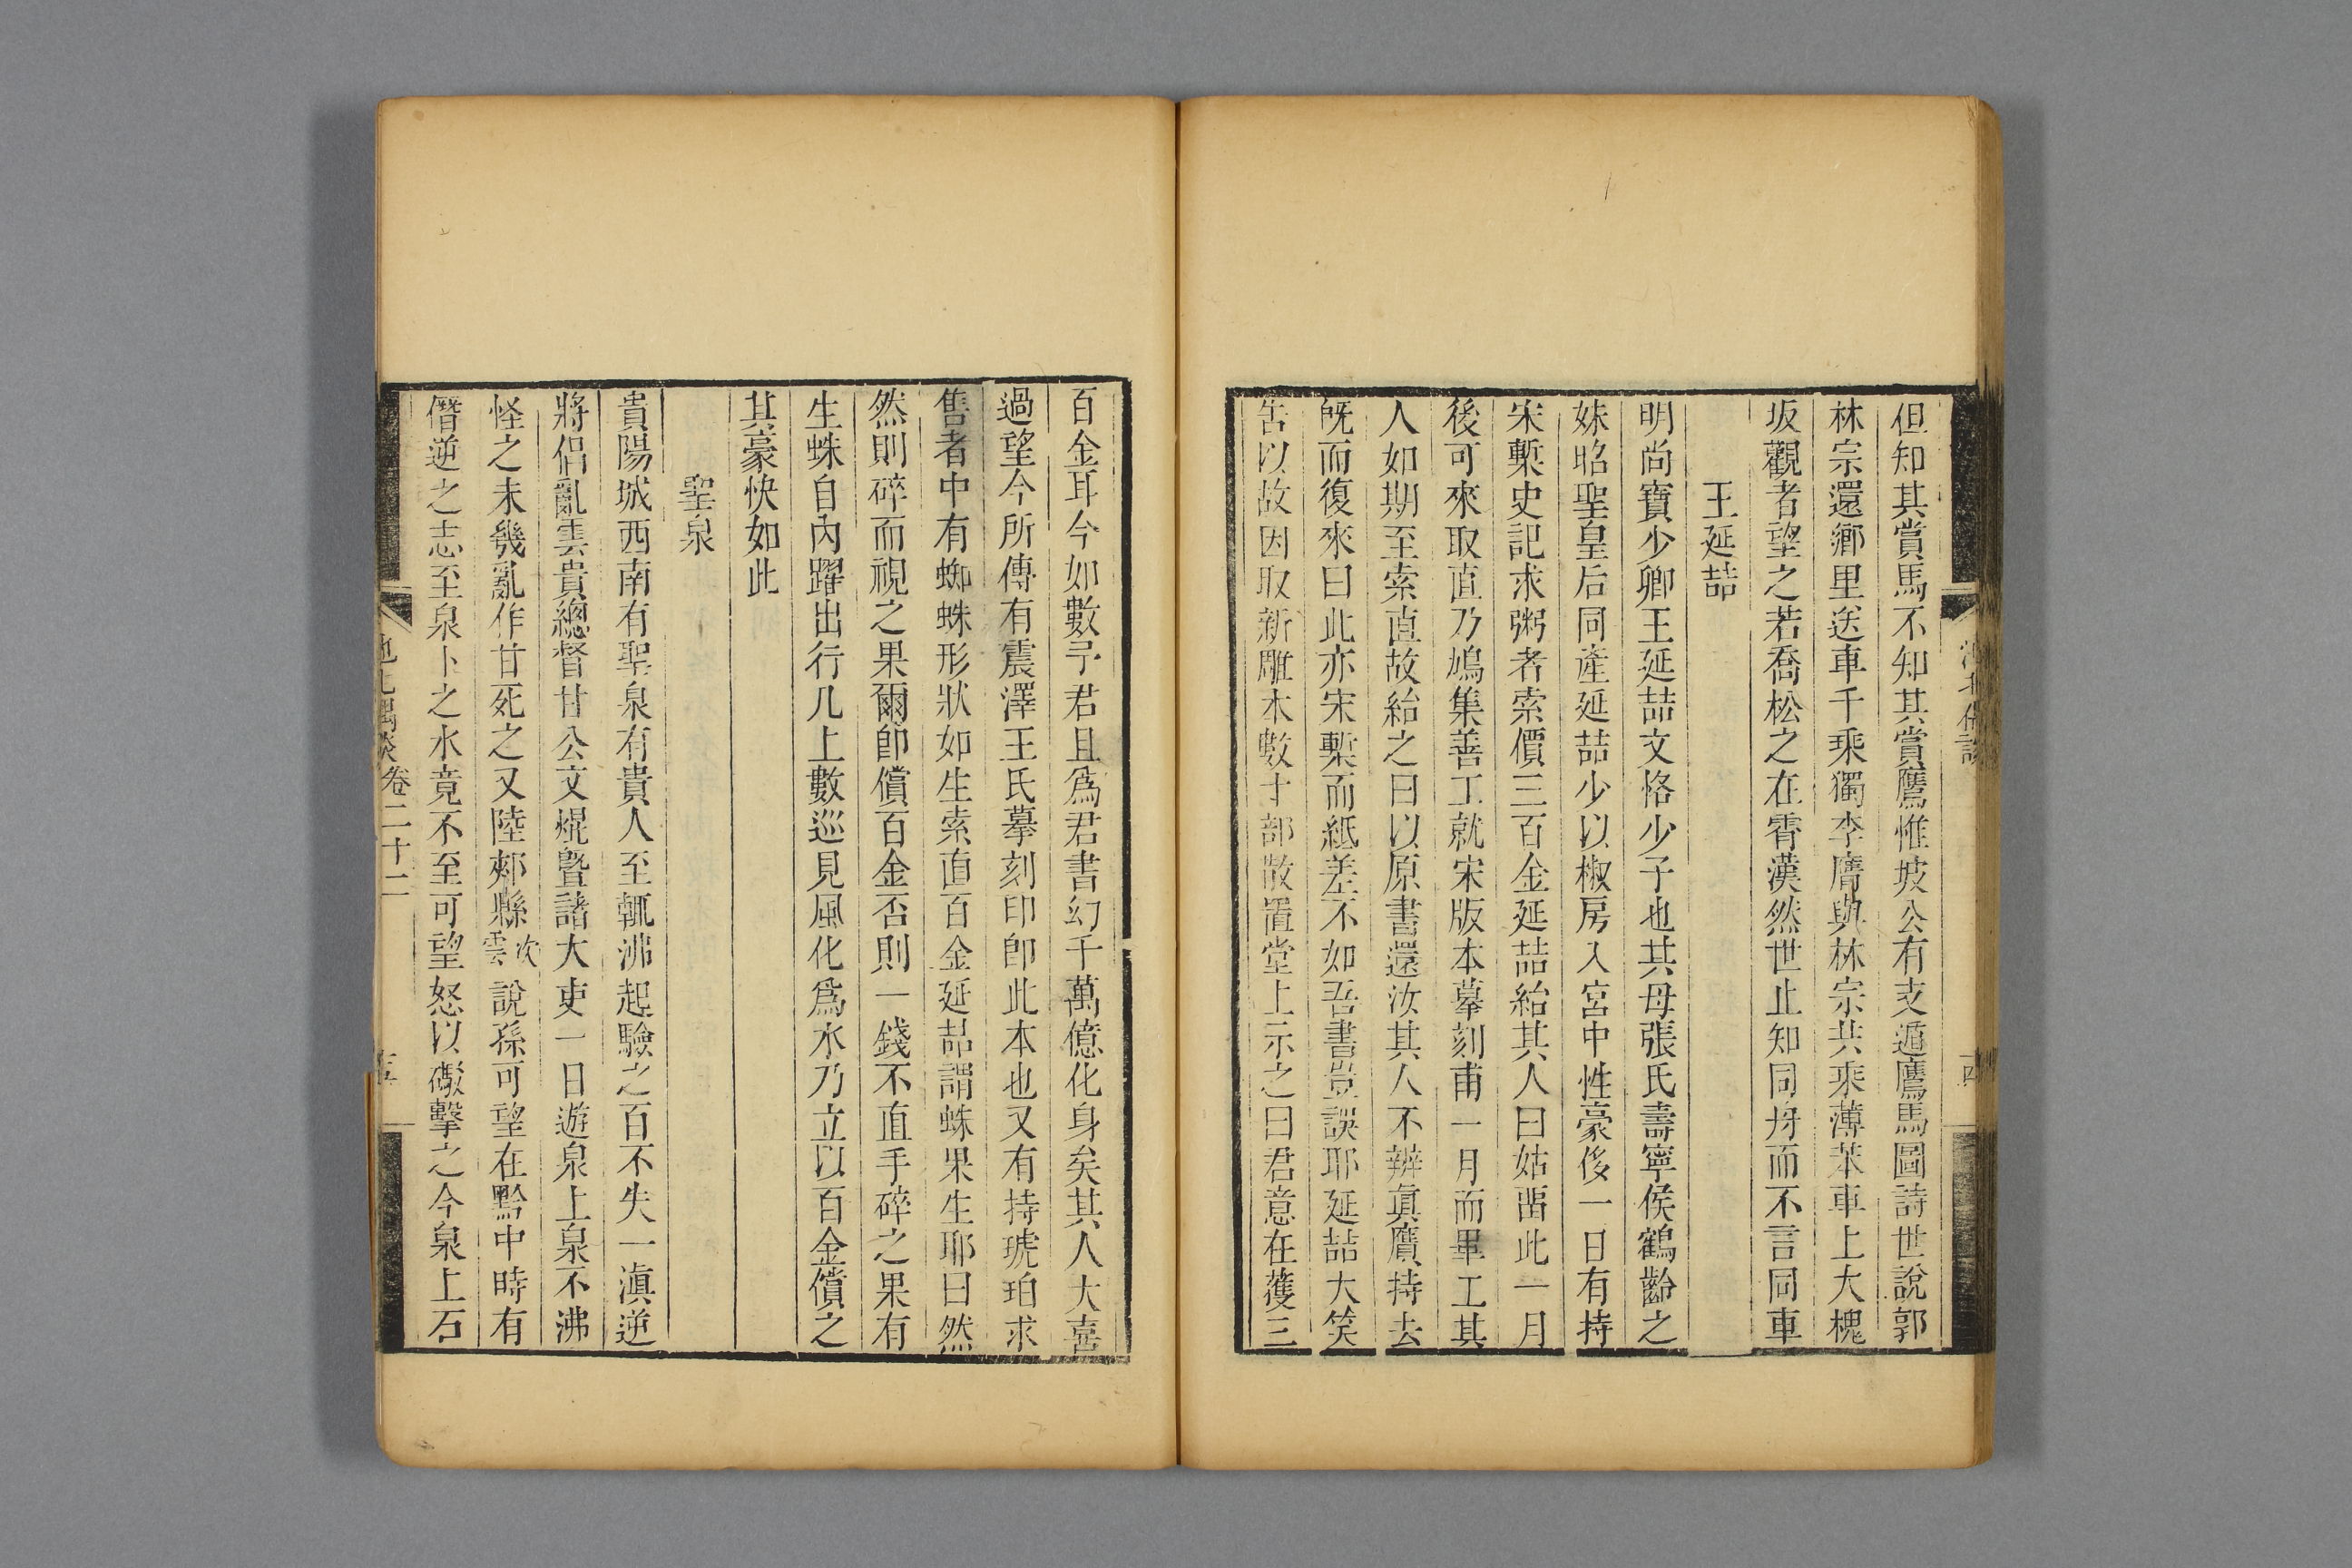 但知其賞馬不知其賞鷹惟坡公有支遁鷹馬圖詩世說郭
林宗還鄉里送車千乘獨李膺與林宗共乘薄苯車上大槐
坂觀者望之若喬松之在霄漢然世止知同舟而不言同車
王延喆
明尚寶少卿王延喆文恪少子也其母張氏壽寧侯鶴齡之
妹昭聖皇后同產延喆少以椒房入宮中性豪侈一日有持
宋槧史記求粥者索價三百金延喆紿其人曰姑畱此一月
後可來取直乃鳩集善工就宋版本摹刻甫一月而畢工其
人如期至索直故紿之曰以原書還汝其人不辨眞贋持去
旣而復來曰此亦宋槧而紙差不如吾書豈誤耶延喆大笑
告以故因取新雕本數十部散置堂上示之曰君意在獲三
百金耳今如數予君且爲君書幻千萬億化身矣其人大喜
過望今所傳有震澤王氏摹刻印卽此本也又有持琥珀求
售者中有蜘蛛形狀如生索直百金延喆謂蛛果生耶曰然
然則碎而視之果爾卽償百金否則一錢不直手碎之果有
生蛛自內躍出行几上數巡見風化爲水乃立以百金償之
其豪快如此
聖泉
貴陽城西南有聖泉有貴人至輒沸起驗之百不失一滇逆
將倡亂雲貴總督甘公文焜曁諸大吏一日遊泉上泉不沸
怪之未幾亂作甘死之又陸郟縣次雲說孫可望在黔中時有
僭逆之志至泉卜之水竟不至可望怒以礮擊之今泉上石
池北偶談 卷二十二